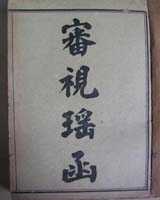 審視瑶函